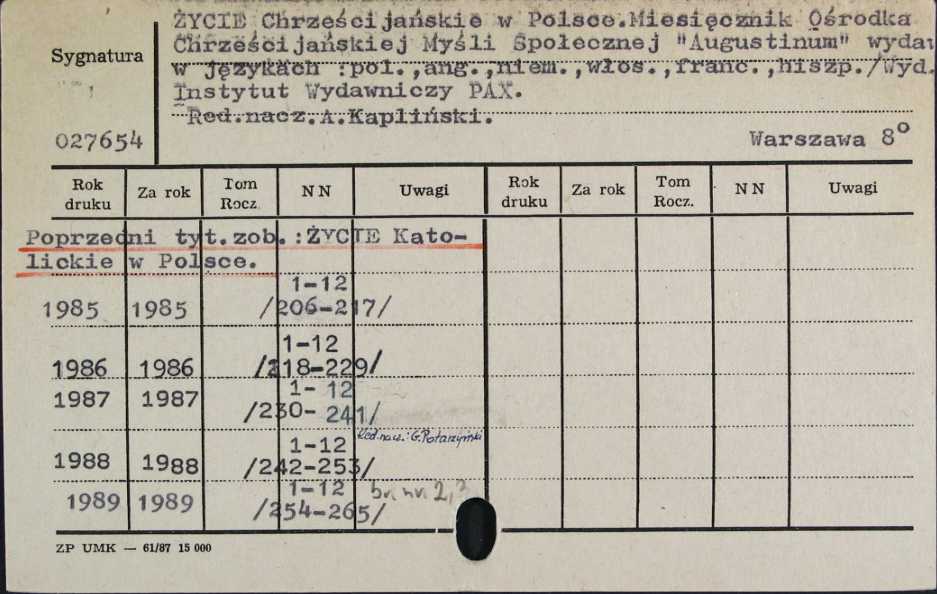 ŻYCIE Chrześcijańskie w Polsce.Miesięcznik Ośrodka
Chrześcijańskiej Myśli Społecznej "Augustinum" wydaw
w językach :pol.,ang.,niem.,włos.,franc.,hiszp./Wyd.
Instytut Wydawniczy PAX.
Red.nacz.A.Kapliński.
Sygnatura
027654
Warszawa 8°
Rok druku Za rok Tom Rocz. N N Uwagi Rok druku Za rok Tom Rocz. N N Uwagi
Poprzedni tyt.zob.:ŻYCIE Kato-
lickie w Polsce.
1-12
1985 1985 /206-217/
1-12
1986 1986 /218-229/
1- 12
1987 1987 /230- 241/
Red.nacz.: G.Polaczyński
1-12
1988 1988 /242-253/
1-12 br nr 2,3
1989 1989 /254-265/
ZP UMK — 61/87 15 000